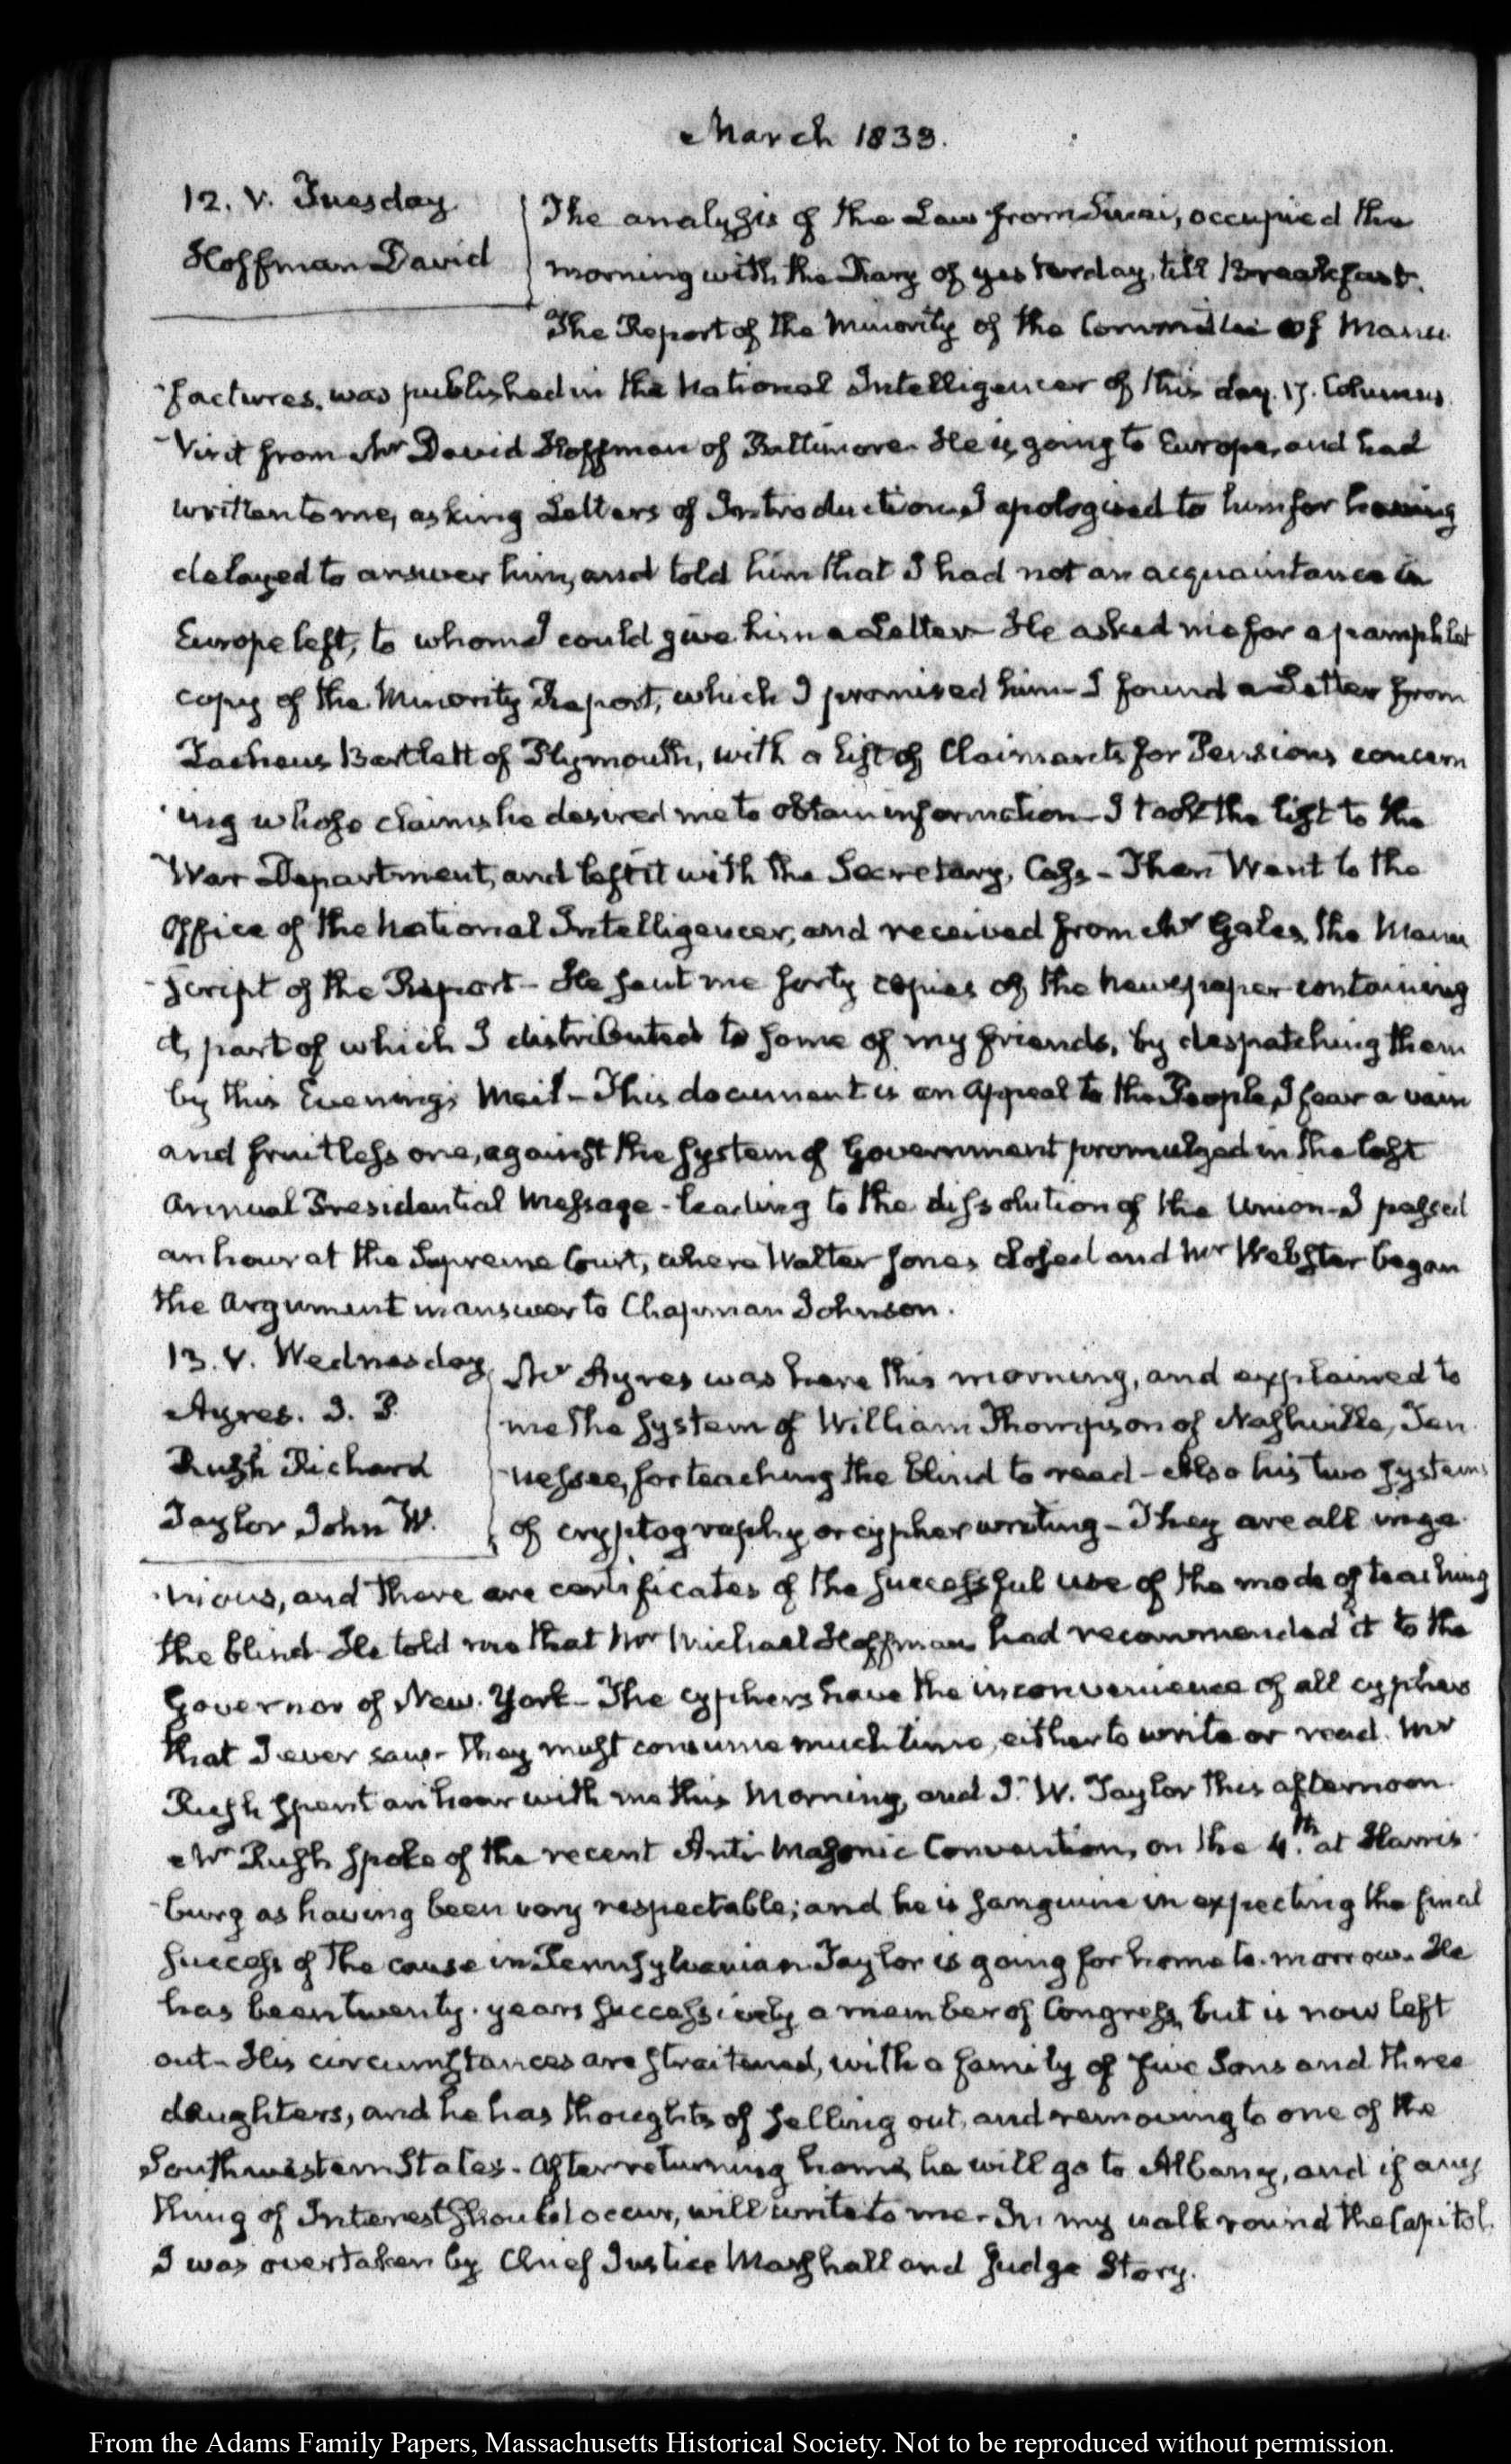 March 1833.
12. V. Tuesday
Hoffman David
The analysis of the Law from Sinai, occupied the
morning with the Diary of yesterday, till Breakfast.
The Report of the Minority of the Committee of Manu
-factures, was published in the National Intelligencer of this day. 17. Columns.
Visit from Mr David Hoffman of Baltimore. He is going to Europe, and had
written to me, asking Letters of Introduction. I apologized to him for having
delayed to answer him, and told him that I had not an acquaintance in
Europe left, to whom I could give him a Letter— He asked me for a pamphlet
copy of the Minority Report, which I promised him— I found a Letter from
Zacheus Bartlett of Plymouth, with a list of Claimants for Pensions concern
-ing whose claims he desired me to obtain information— I took the list to the
War Department, and left it with the Secretary, Cass— Then Went to the
Office of the National Intelligencer, and received from Mr Gales, the Manu
-script of the Report— He sent me forty copies of the newspaper containing
it, part of which I distributed to some of my friends, by despatching them
by this Evening's Mail— This document is an Appeal to the People, I fear a vain
and fruitless one, against the System of Government promulged in the last
Annual Presidential Message— leading to the dissolution of the Union— I passed
an hour at the Supreme Court, where Walter Jones closed and Mr Webster began
the Argument in answer to Chapman Johnson.
13. V. Wednesday
Ayres. I. P.
Rush Richard
Taylor John W.
Mr Ayres was here this morning, and explained to
me the system of William Thompson of Nashville, Ten
-nessee, for teaching the blind to read— Also his two systems
of cryptography or cypher writing— They are all inge
-nious, and there are certificates of the successful use of the mode of teaching
the blind— He told me that Mr Michael Hoffman had recommended it to the
Governor of New-York— The cyphers have the inconvenience of all cyphers
that I ever saw— they must consume much time, either to write or read. Mr
Rush spent an hour with me this Morning, and J. W. Taylor this afternoon.
Mr Rush spoke of the recent Anti-Masonic Convention, on the 4.th at Harris
-burg as having been very respectable; and he is sanguine in expecting the final
success of the cause in Pennsylvania. Taylor is going for home to-morrow. He
has been twenty-years successively a member of Congress, but is now left
out— His circumstances are straitened, with a family of five Sons and three
daughters, and he has thoughts of selling out, and removing to one of the
Southwestern States. After returning home, he will go to Albany, and if any
thing of Interest should occur, will write to me— In my walk round the Capitol.
I was overtaken by Chief Justice Marshall and Judge Story.
From the Adams Family Papers, Massachusetts Historical Society. Not to be reproduced without permission.